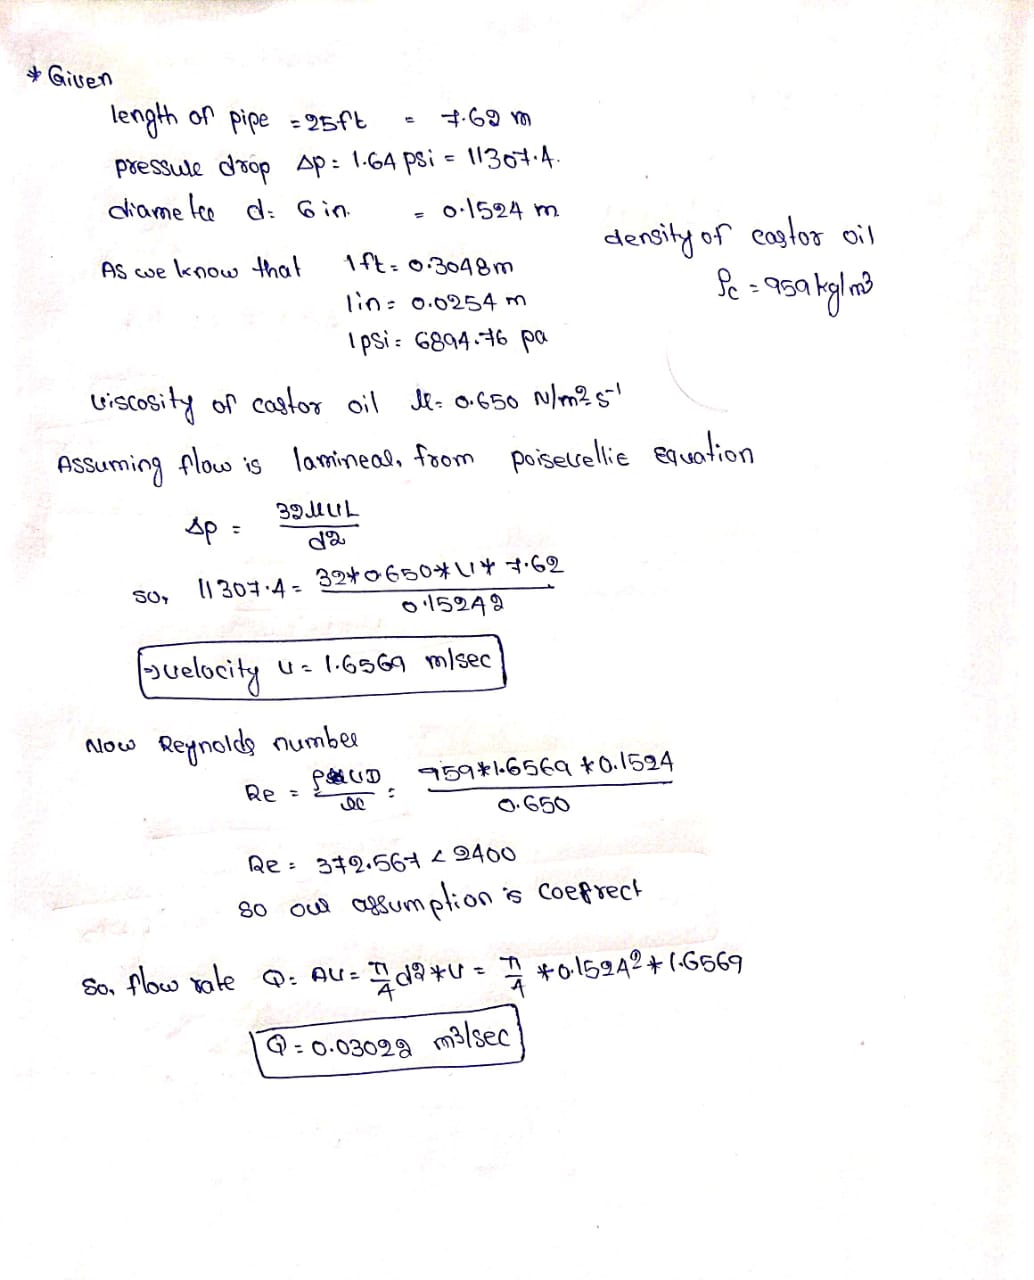 * Given
length of pipe = 25ft = 7.62 m
pressure drop Δp = 1.64 psi = 11307.4.
diameter d = 6 in. = 0.1524 m
density of castor oil
As we know that 1ft = 0.3048m
ρc = 959 kg/m3
1in = 0.0254 m
1psi = 6894.76 pa
viscosity of castor oil μ = 0.650 N/m2 s-1
Assuming flow is lamineal, from poisevellie equation
Δp = 32μUL / d2
so, 11307.4 = 32*0.650*U*7.62 / 0.15242
=> velocity u = 1.6569 m/sec
Now Reynolds number
Re = ρUD / μ = 959*1.6569*0.1524 / 0.650
Re = 372.567 < 2400
so our assumption is correct
So, flow rate Q = AU = π/4 d2*U = π/4 *0.15242*1.6569
Q = 0.03022 m3/sec